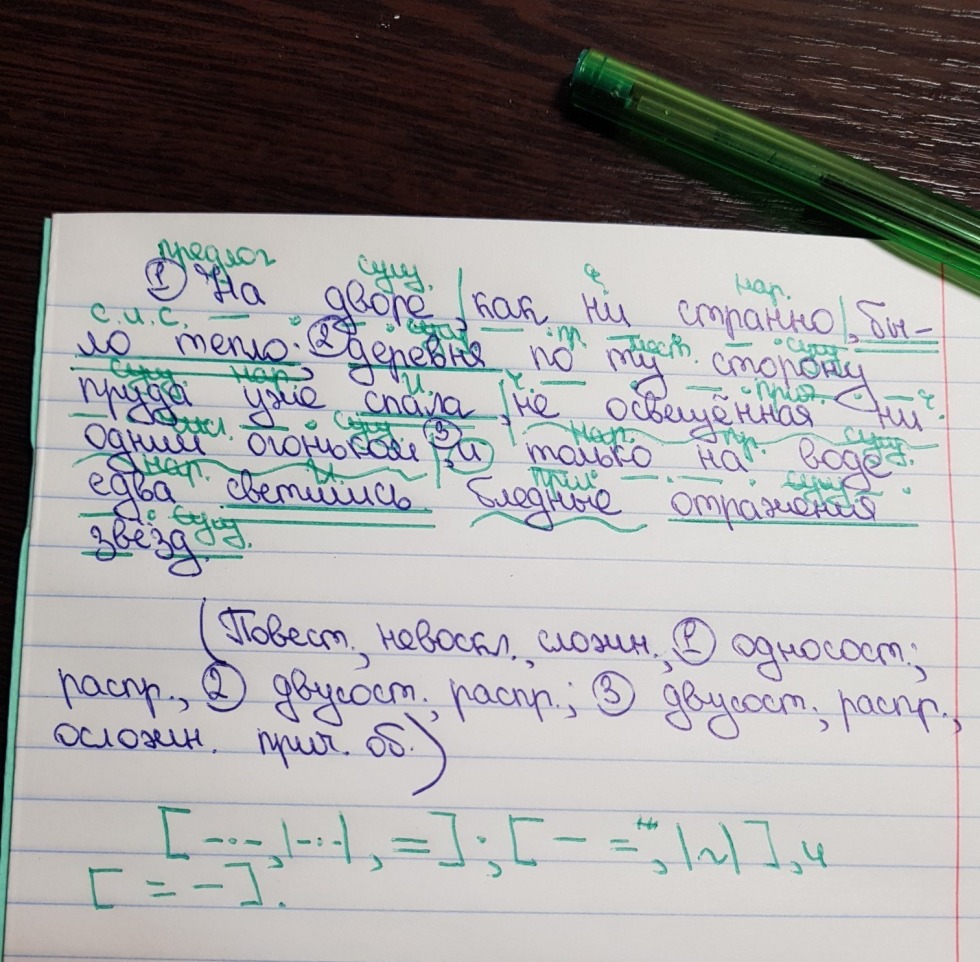 предлог сущ. ч нар.
① На дворе, как ни странно, бы-
с.и.с. сущ. пр. мест. сущ.
ло тепло; ② деревня по ту сторону
сущ. нар. ч. прич. ч.
пруда уже спала, не освещённая ни
сущ. нар. пр. сущ.
одним огоньком, ③ и только на воде
нар. прил. сущ.
едва светились бледные отражения
сущ.
звёзд.
(Повест., невоскл., сложн., ① односост.;
распр., ② двусост., распр.; ③ двусост., распр.,
осложн. прич. об.)
[-·-·-, |-·-·|, =]; [– =, |~|], и
[= –].